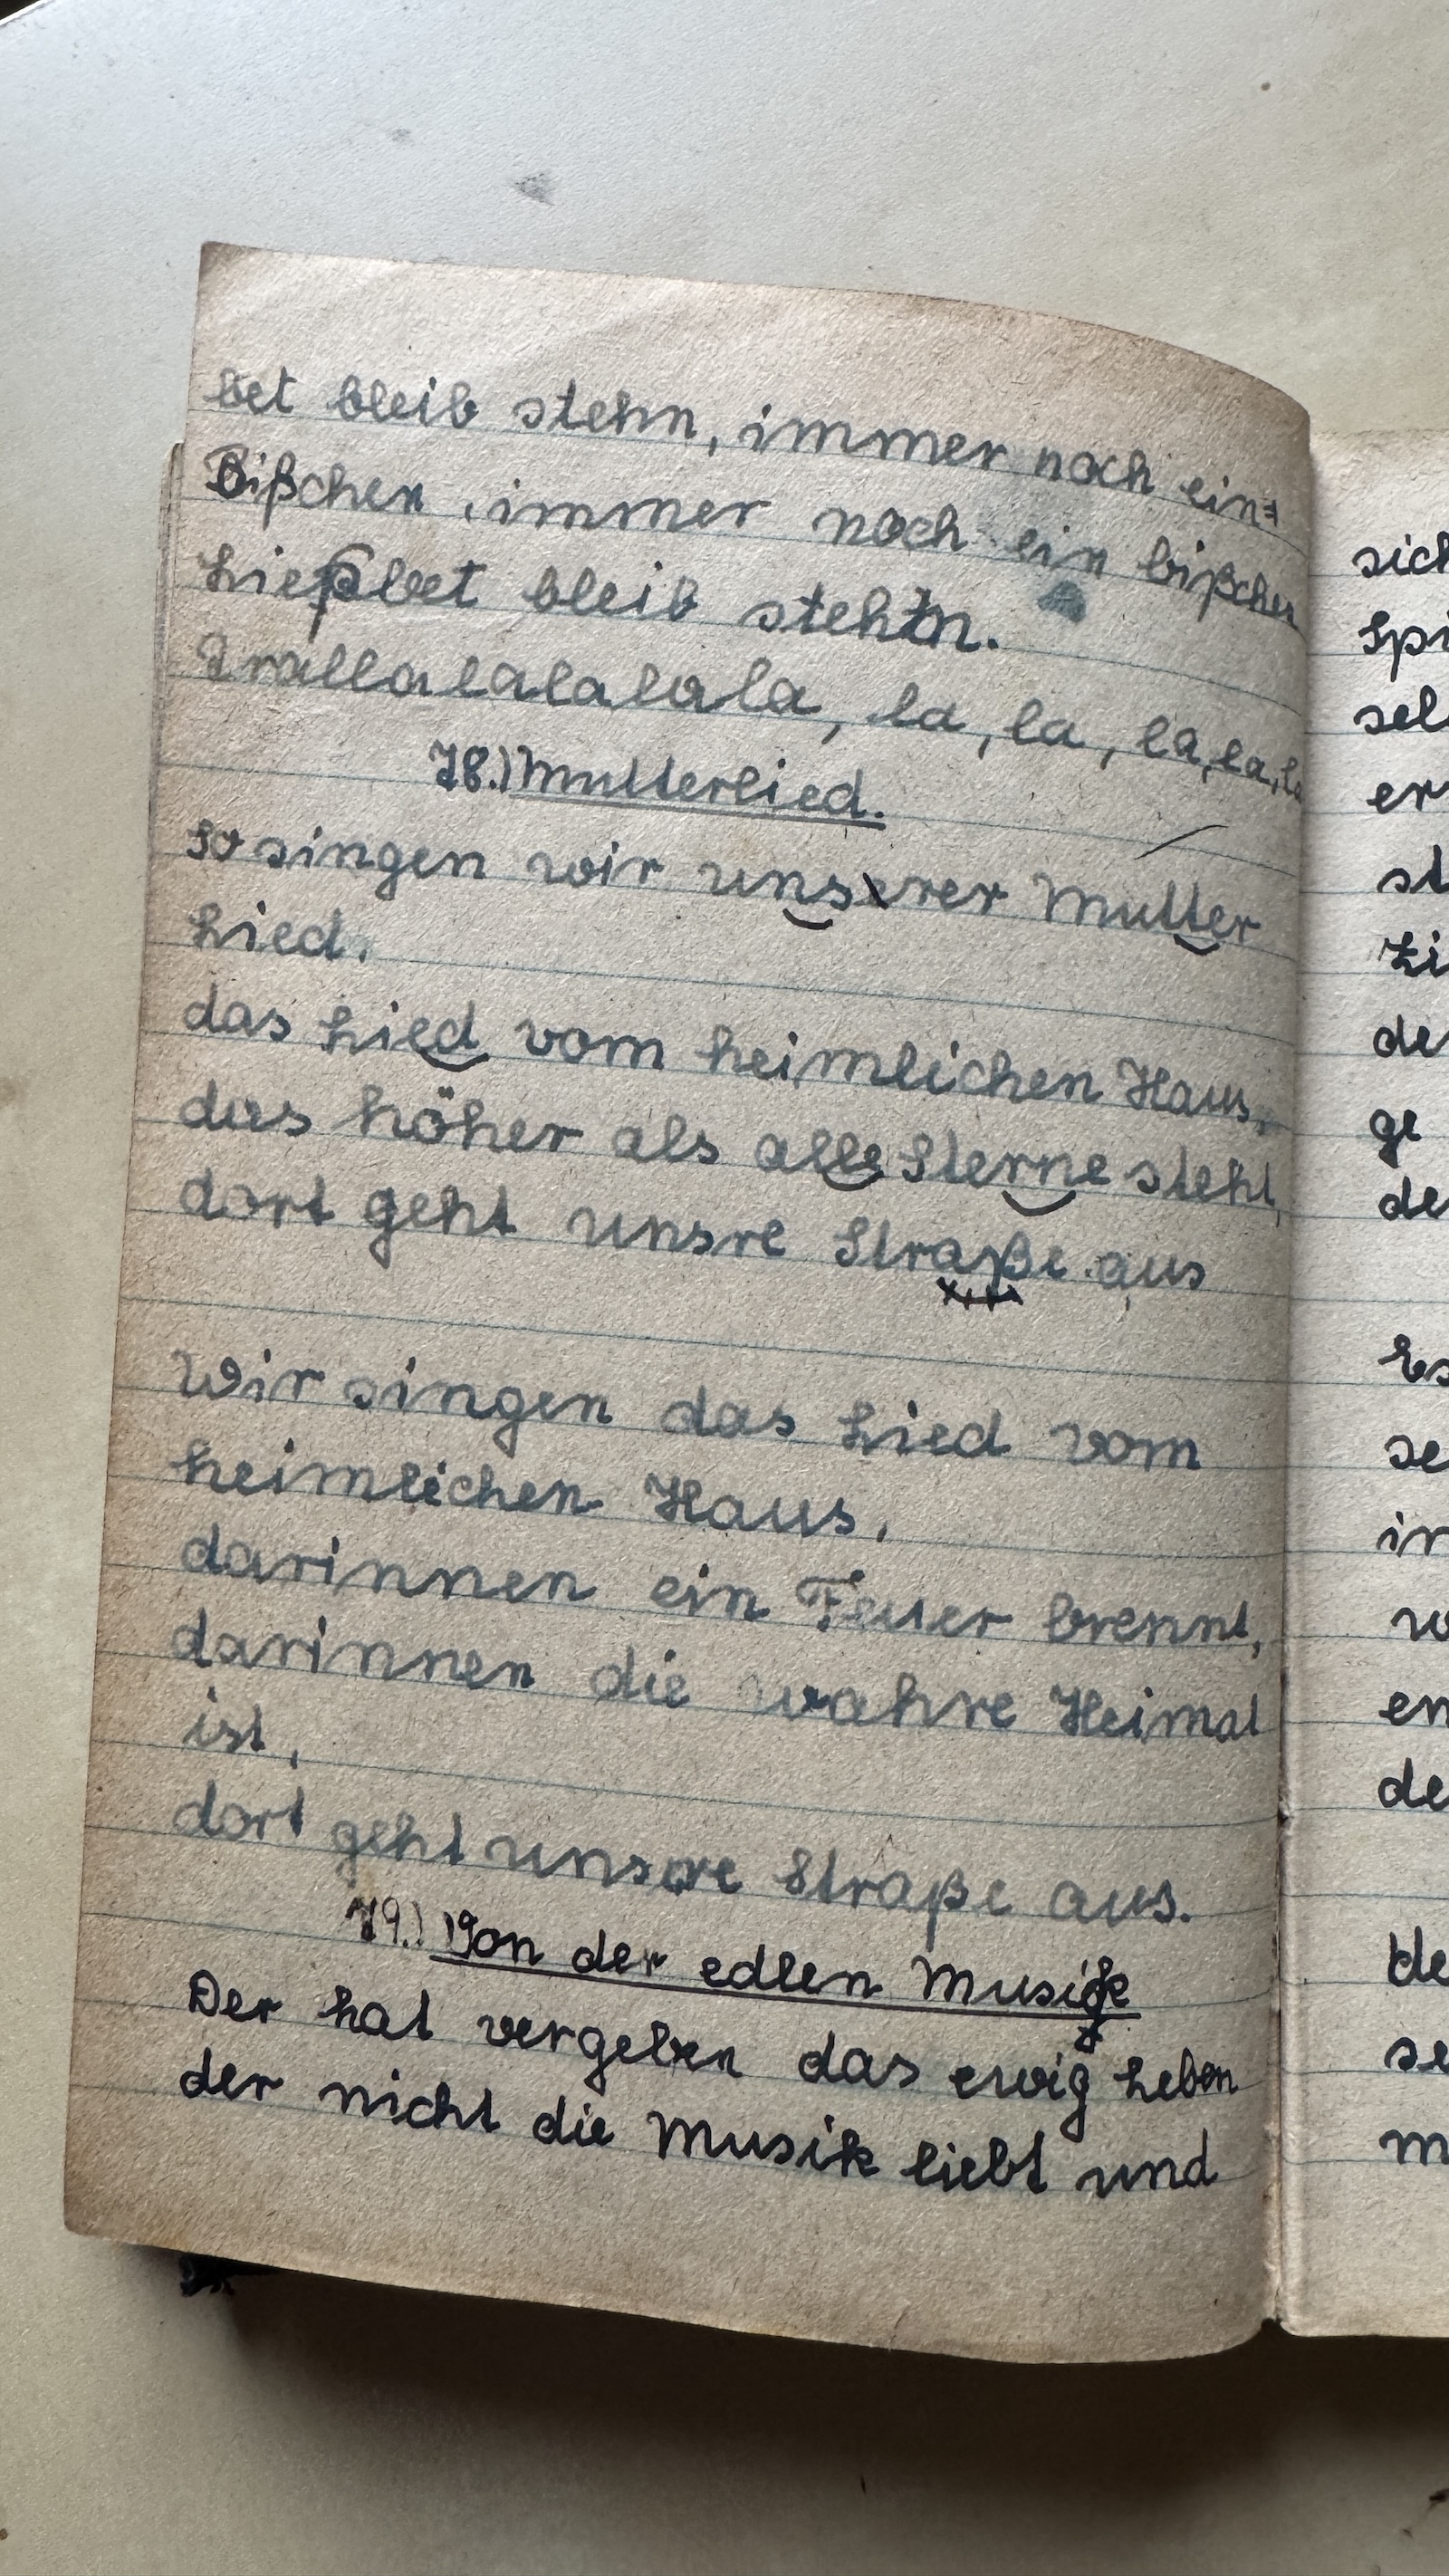 bet bleib stehn, immer noch ein=
Bißchen, immer noch ein bißchen
Ließbet bleib stehn.
Trallalalalalala, la, la, la, la, la
78.) Mutterlied.
So singen wir unsrer Mutter
Lied.
das Lied vom heimlichen Haus,
das höher als alle Sterne steht,
dort geht unsre Straße aus
Wir singen das Lied vom
heimlichen Haus,
darinnen ein Feuer brennt,
darinnen die wahre Heimat
ist,
dort geht unsre Straße aus.
79.) Von der edlen Musik
Der hat vergeben das ewig Leben
der nicht die Musik liebt und
sich
Spi
sel
er
st
Zi
de
ge
de
Es
se
in
w
en
de
de
se
m